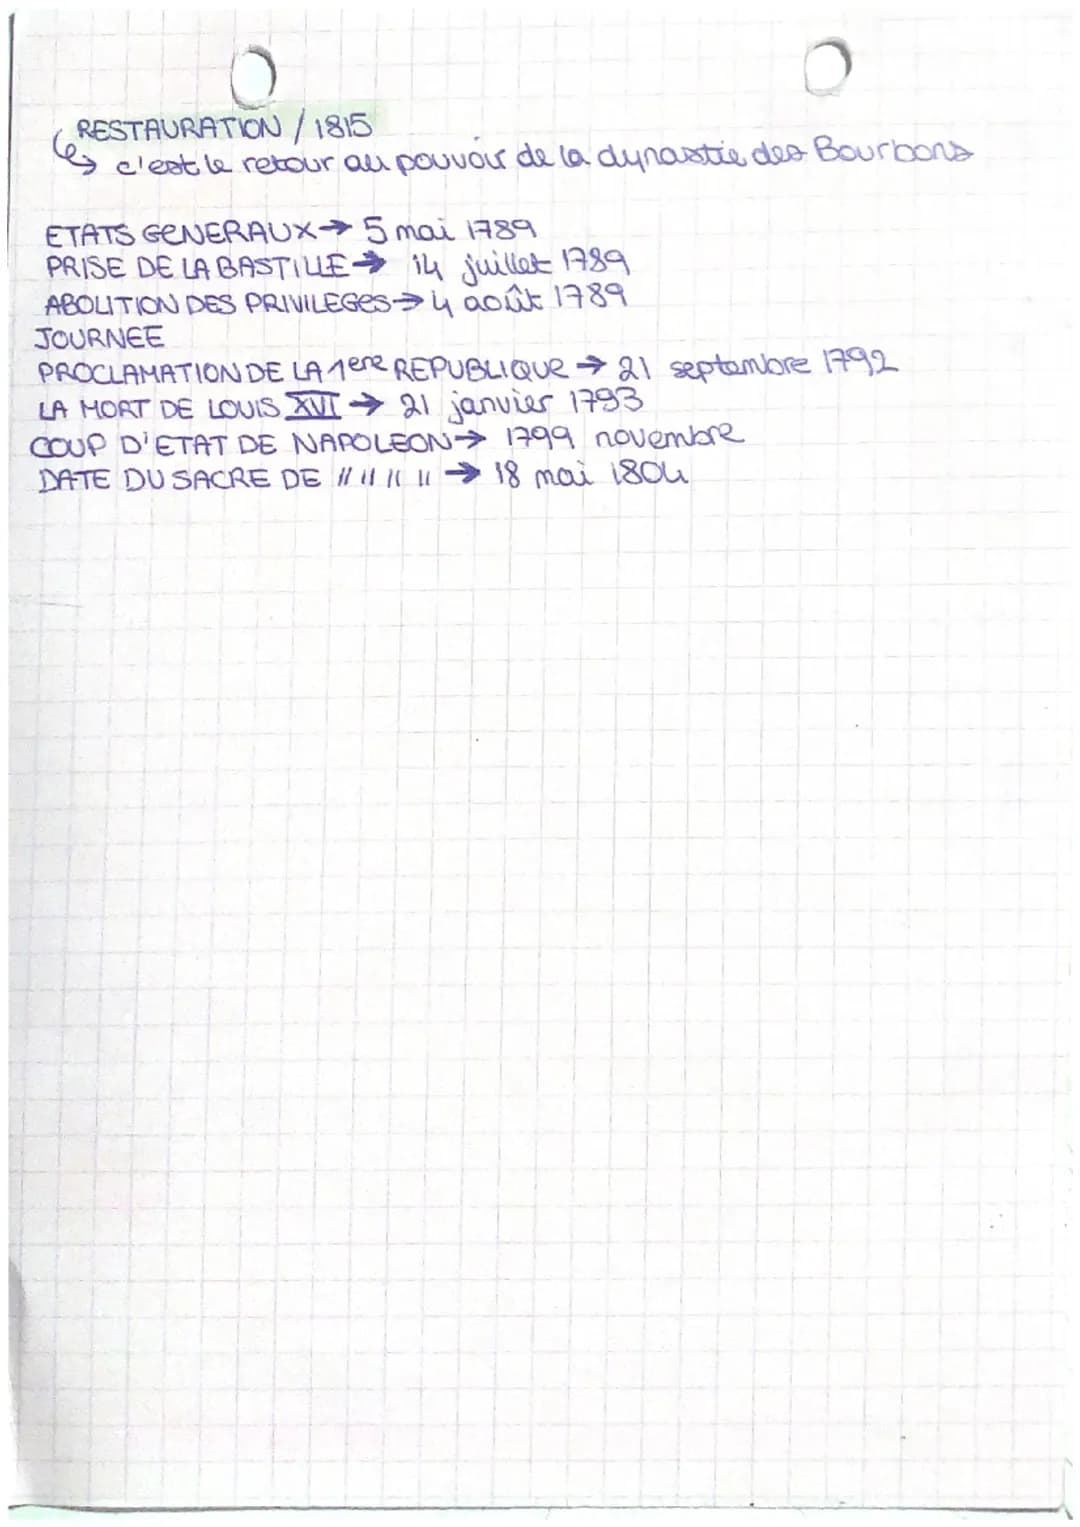 RESTAURATION / 1815
↳ c'est le retour au pouvoir de la dynastie des Bourbons
ETATS GENERAUX → 5 mai 1789
PRISE DE LA BASTILLE → 14 juillet 1789
ABOLITION DES PRIVILEGES → 4 août 1789
JOURNEE
PROCLAMATION DE LA 1ere REPUBLIQUE → 21 septembre 1792
LA MORT DE LOUIS XVI → 21 janvier 1793
COUP D'ETAT DE NAPOLEON → 1799 novembre
DATE DU SACRE DE // // // // → 18 mai 1804